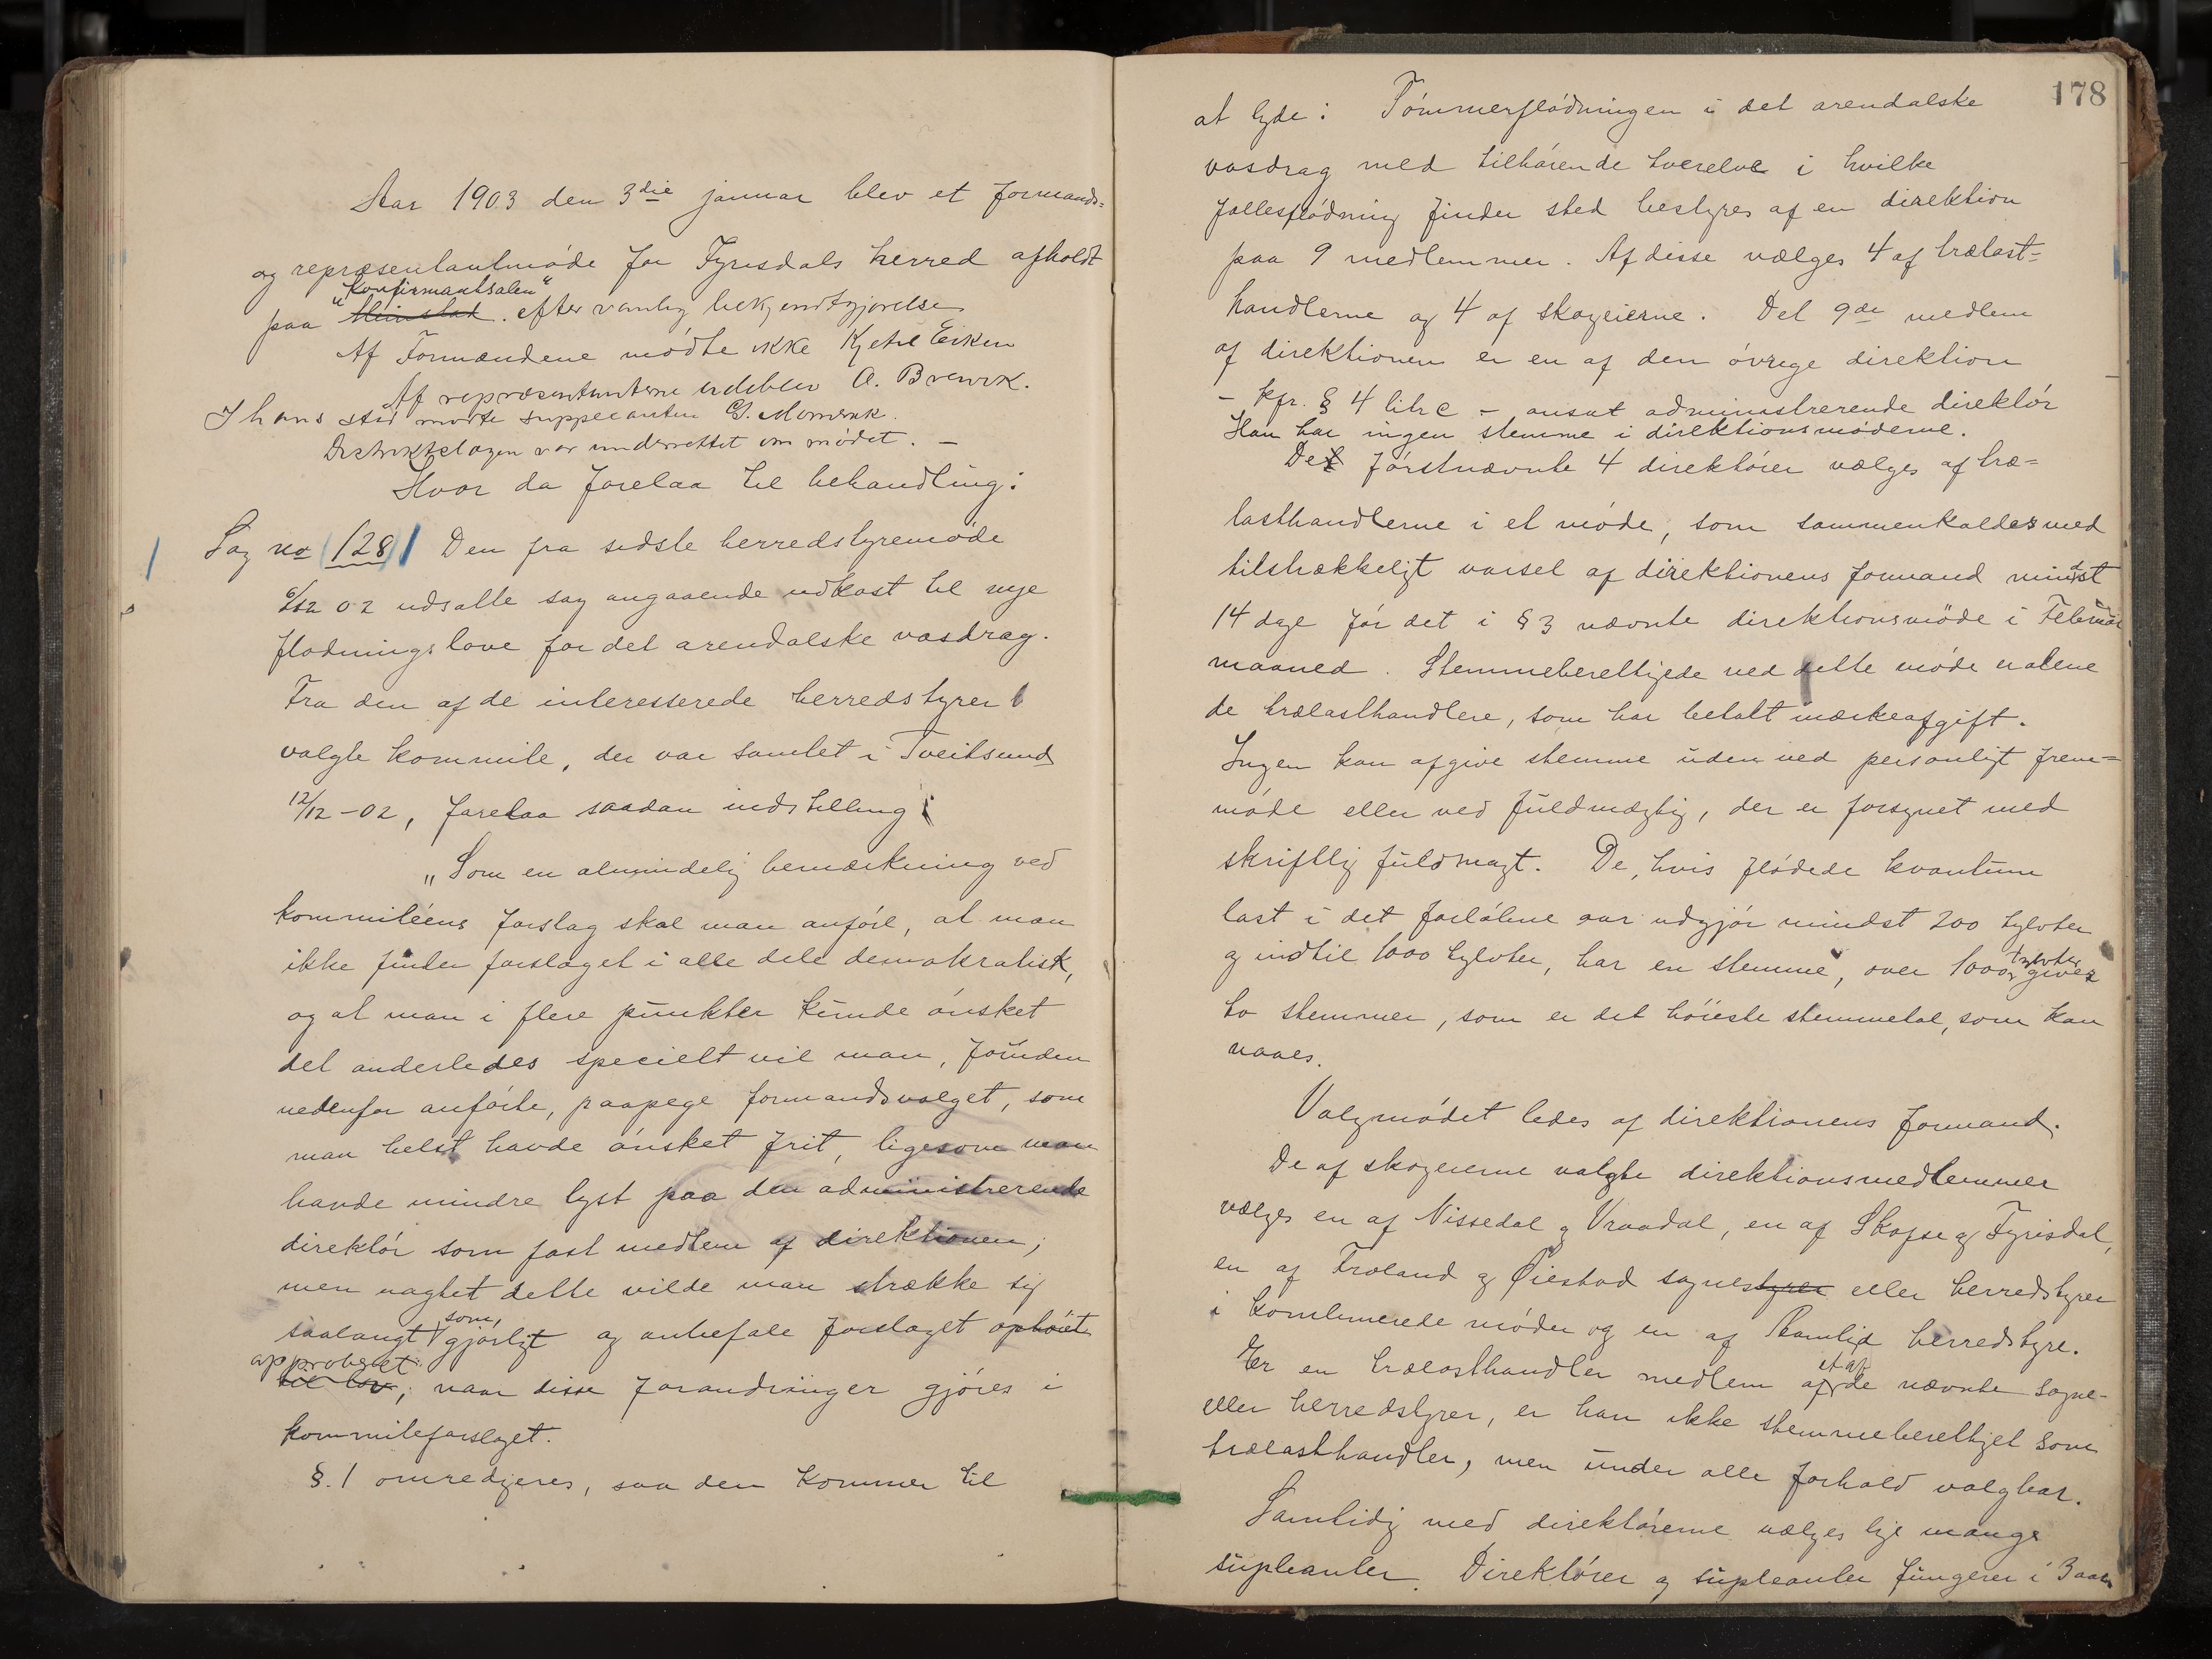 Aar 1903 den 3die januar blev et formands-
og repræsentantmøde for Fyrisdals herred afholdt
"Konfirmantsalen"
paa Meinstad. efter vanlig bekjendtgjørelse
Af Formændene mødte ikke Kjetil Eiken
Af repræsentanterne udeblev A. Brenvik.
I hans sted mødte suppleanten G. Momrak.
Distriktslægen var underrettet om mødet. –
Hvor da forelaa til behandling:
Sag no 128 Den fra sidste herredstyremøde
6/12 02 udsatte sag angaaende udkast til nye
flødningslove for det arendalske vasdrag.
Fra den af de interesserede herredstyrer
valgte kommite, der var samlet i Tveitsund
12/12 – 02, forelaa saadan indstilling:
"Som en almindelig bemærkning ved
kommiteens forslag skal man anføre, at man
ikke finder forslaget i alle dele demokratisk,
og at man i flere punkter kunde ønsket
det anderledes specielt vil man, foruden
nedenfor anførte, paapege formandsvalget, som
man helst havde ønsket frit, ligesom man
havde mindre lyst paa den administrerende
direktør som fast medlem af direktionen;
men uagtet dette vilde man strække sig
som,
saalangt gjørligt og anbefale forslaget ophøiet
approberet
til lov, naar disse forandringer gjøres i
kommiteforslaget.
§. 1 omredigeres, saa den kommer til
178
at lyde: Tømmerflødningen i det arendalske
vasdrag med tilhørende tverelve i hvilke
fællesflødning finder sted bestyres af en direktion
paa 9 medlemmer. Af disse vælges 4 af trælast-
handlerne og 4 af skogeierne. Det 9de medlem
af direktionen er en af den øvrige direktion
– kfr. § 4 litr c – ansat administrerende direktør
Han har ingen stemme i direktionsmøderne.
De førstnævnte 4 direktører vælges af træ-
lasthandlerne i et møde, som sammenkaldes med
tilstrækkeligt varsel af direktionens formand mindst
14 dage før det i § 3 nævnte direktionsmøde i Februar
maaned. Stemmeberettigede ved dette møde er alene
de trælasthandlere, som har betalt mærkeafgift.
Ingen kan afgive stemme uden ved personligt frem-
møde eller ved fuldmægtig, der er forsynet med
skriftlig fuldmagt. De, hvis flødede kvantum
last i det forløbne aar udgjør mindst 200 tylvter
og indtil 1000 tylvter, har en stemme, over 1000 tylvter gives
to stemmer, som er det høieste stemmetal, som kan
naaes.
Valgmødet ledes af direktionens formand.
De af skogeierne valgte direktionsmedlemmer
vælges en af Nissedal og Vraadal, en af Skafse og Fyrisdal,
en af Froland og Øiestad sognestyrer eller herredstyrer
i kombinerede møder og en af Aamlid herredstyre.
et af
Er en trælasthandler medlem af de nævnte sogne-
eller herredstyrer, er han ikke stemmeberettiget som
trælasthandler, men under alle forhold valgbar.
Samtidig med direktørerne vælges lige mange
supleanter. Direktører og supleanter fungerer i 3 aar